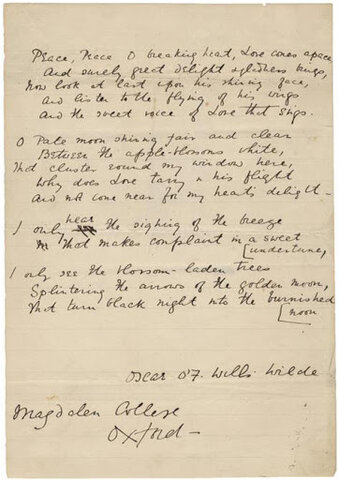 Peace, Peace O breaking heart, Love comes apace,
And surely great delight & gladness brings,
Now look at last upon his shining face,
And listen to the flying of his wings
And the sweet voice of Love that sings.
O Pale moon shining fair and clear
Between the apple-blossoms white,
That cluster round my window here,
Why does Love tarry in his flight
And not come near for my heart's delight—
I only hear the sighing of the breeze
That makes complaint in a sweet
[undertune,
I only see the blossom-laden trees
Splintering the arrows of the golden moon,
That turn black night into the burnished
[noon
Oscar O'F. Wills Wilde
Magdalen College
Oxford—